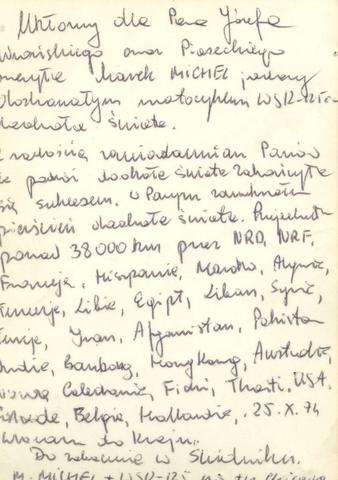 Ukłony dla Pana Józefa
Wrońskiego oraz Piaseckiego
Marek MICHEL jadący
doskonałym motocyklem WSK-125
dookoła świata.
z radością zawiadamiam Panów
że podróż dookoła świata zakończyła
się sukcesem. zamknąłem
pierścień dookoła świata. Przejechałem
ponad 38000 km przez NRD, NRF,
Francję, Hiszpanię, Maroko, Algierię,
Tunezję, Libię, Egipt, Liban, Syrię,
Turcję, Iran, Afganistan, Pakistan
Indie, Bankok, Hong Kong, Australię,
Nową Caledonię, Fidżi, Thaiti, USA,
Belgię, Hollandię, 25. X. 74
Wracam do kraju.
Do zobaczenia w Świdniku.
M. MICHEL + WSK-125